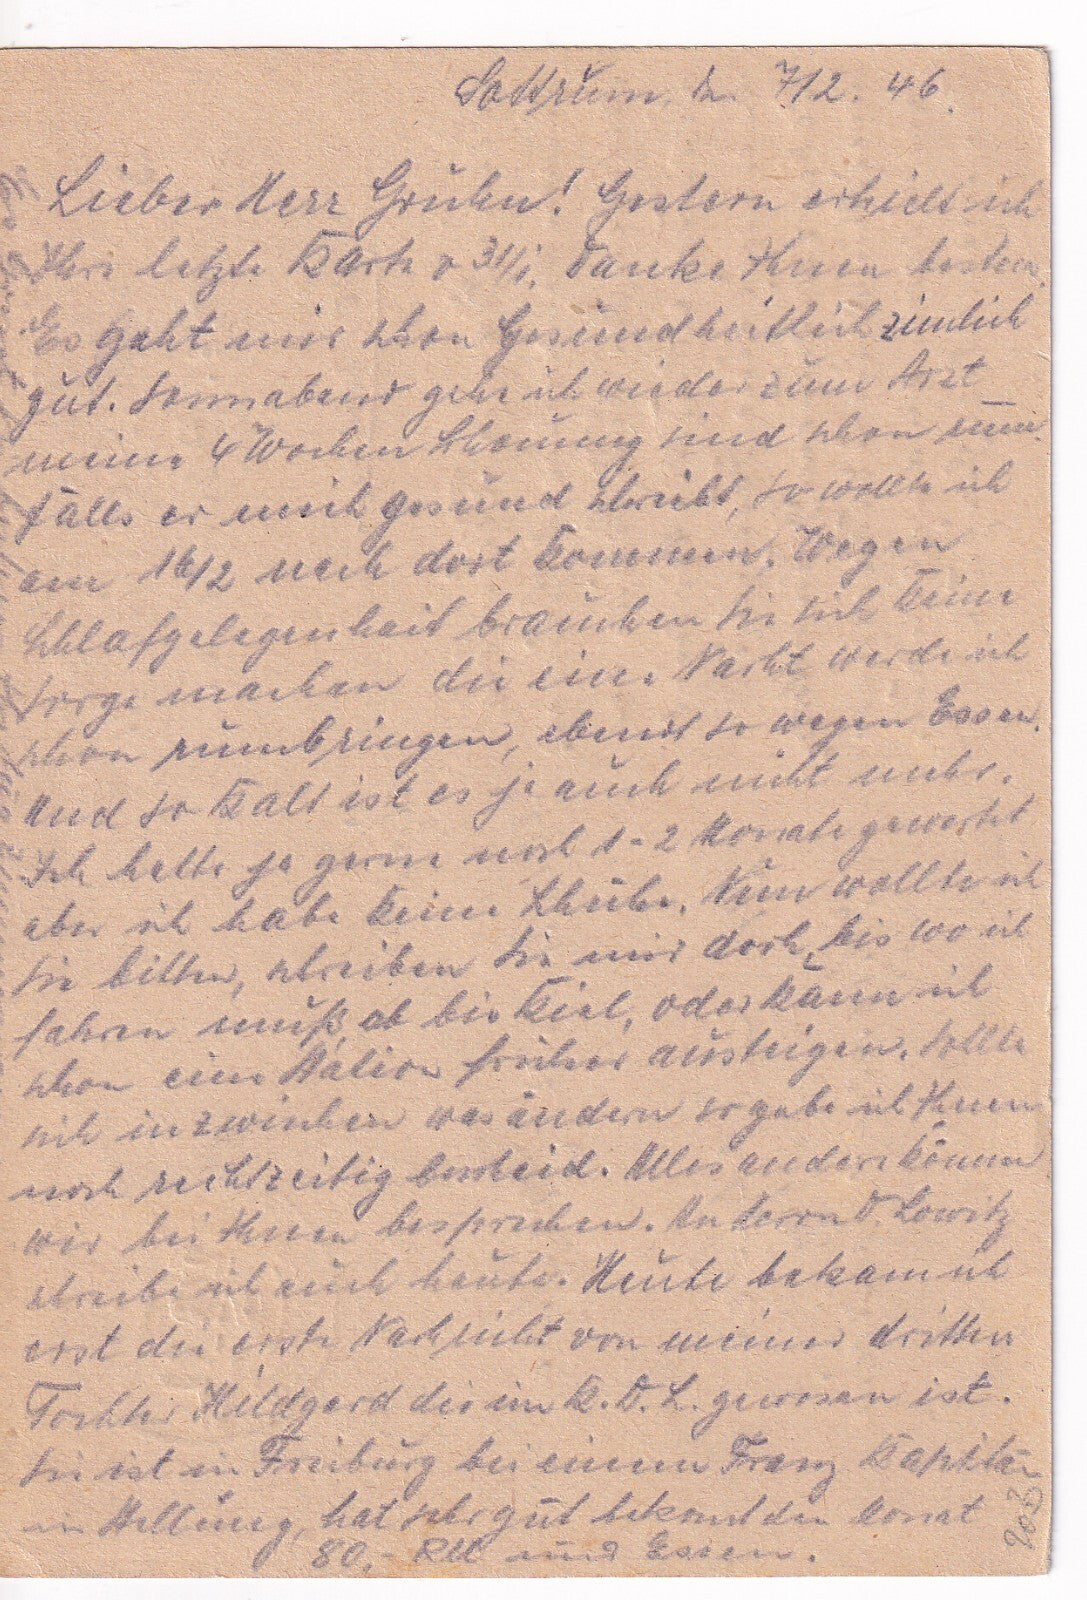 Sottrum, d. 7/2. 46.
Lieber Herr Gruhn! Gestern erhielt ich
Ihre letzte Karte v 31/1. Danke Ihnen bestens.
Es geht mir schon Gesundheitlich zimlich
gut. Sonnabend gehe ich wieder zum Arzt
meine 4 Wochen Schonung sind schon rum.
falls er mich gesund schreibt, so wollte ich
am 16/2 nach dort kommen. Wegen
Schlafgelegenheit brauchen Sie sich keine
sorge machen die eine Nacht werde ich
schon rumbringen, ebenso wegen Essen.
Und so kalt ist es ja auch nicht mehr.
Ich hette ja gerne noch 1-2 Monate gewartet
aber ich habe keine Schuhe. Nun wollte ich
Sie bitten, schreiben Sie mir doch, bis wo ich
fahren muß, ob bis Kiel, oder kann ich
schon eine Station früher aussteigen. Sollte
sich inzwischen was ändern so gebe ich Ihnen
noch rechtzeitig bescheid. Alles andere können
wir bei Ihnen besprechen. An Herrn D. Lowitz
schreibe ich auch heute. Heute bekam ich
erst die erste Nachricht von meiner dritten
Tochter Hildgard die im K.D.L. gewesen ist.
Sie ist in Freiburg bei einem Franz Kapitän
in Stellung, hat sehr gut bekomt den Monat
80,- RM und Essen.